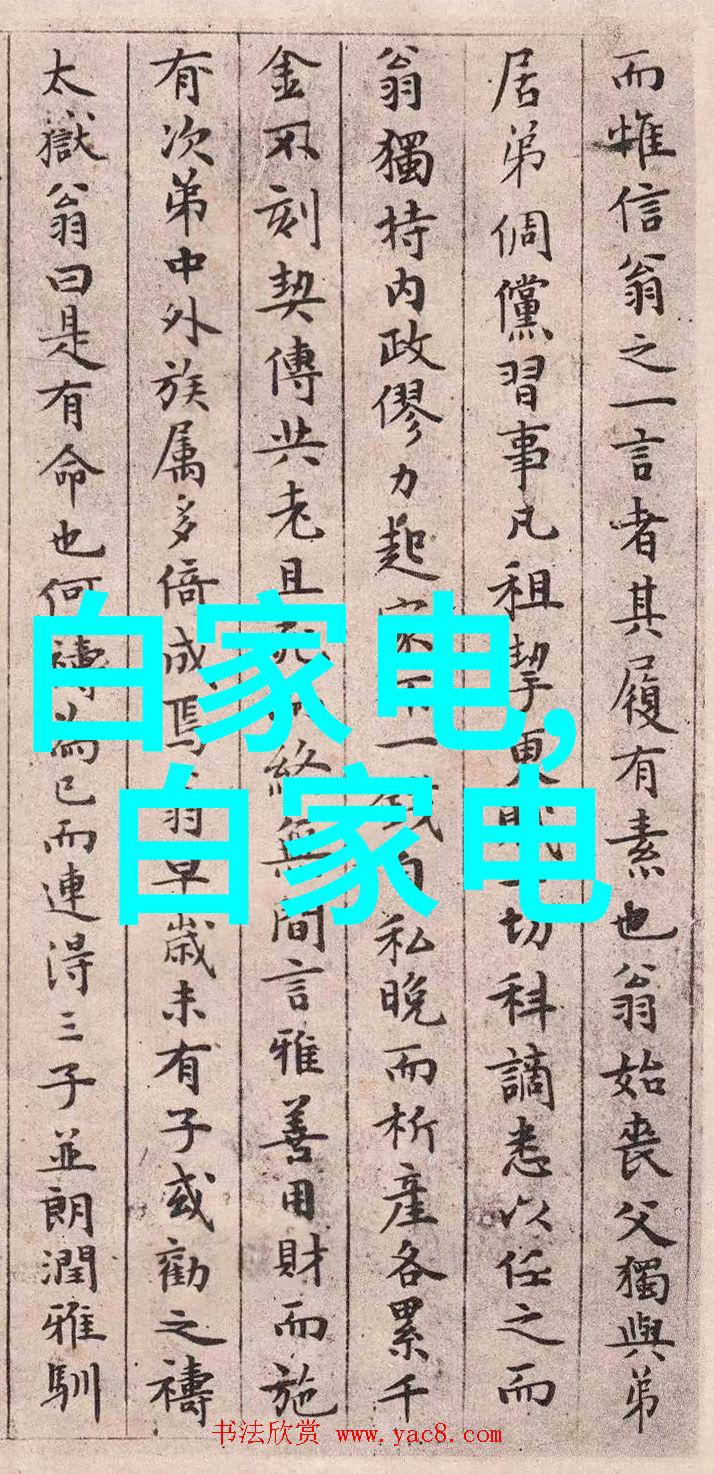 而惟信翁之一言者其履有素也翁始喪父獨與弟
居弟倜儻習事凡租挈更賦一切科謫悉以任之而
翁獨持内政僇力起家不一錢自私晚而析產各累千
金不刻契傳共老且死終無間言雅善用財而施
有次弟中外族属多倚成焉翁早歲未有子或勸之禱
太嶽翁曰是有命也何禱為已而連得三子並朗潤雅馴
白家电,
白家电
书法欣赏 www.yac8.com